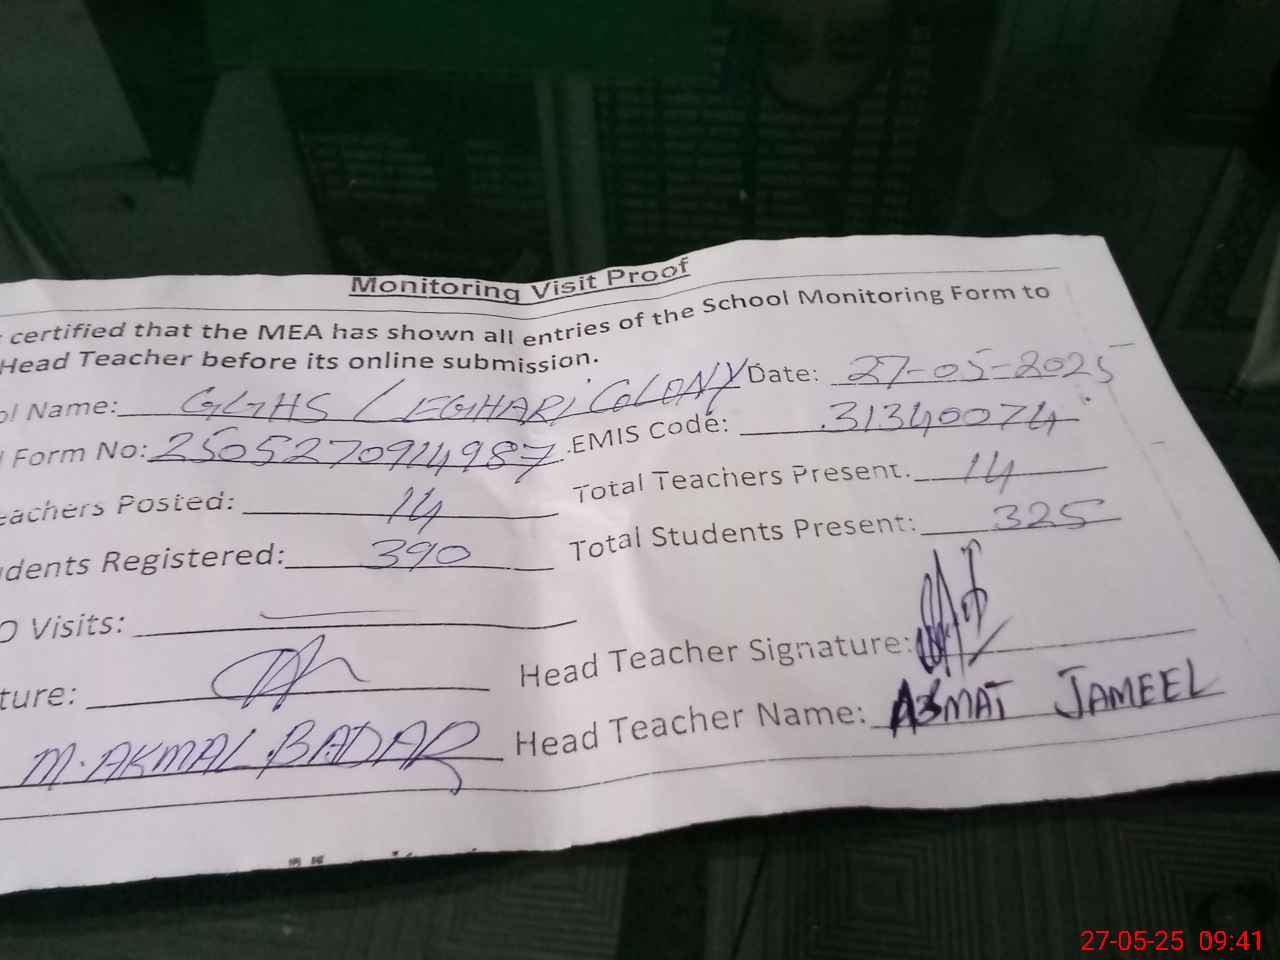 Monitoring Visit Proof
certified that the MEA has shown all entries of the School Monitoring Form to
Head Teacher before its online submission.
ol Name: GGHS LEGHARI COLONY Date: 27-05-2025
Form No: 2505270914987 EMIS Code: 31340074
eachers Posted: 14 Total Teachers Present. 14
dents Registered: 390 Total Students Present: 325
O Visits:
ture: Head Teacher Signature:
M. AKMAL BADAR Head Teacher Name: ASMAT JAMEEL
27-05-25 09:41